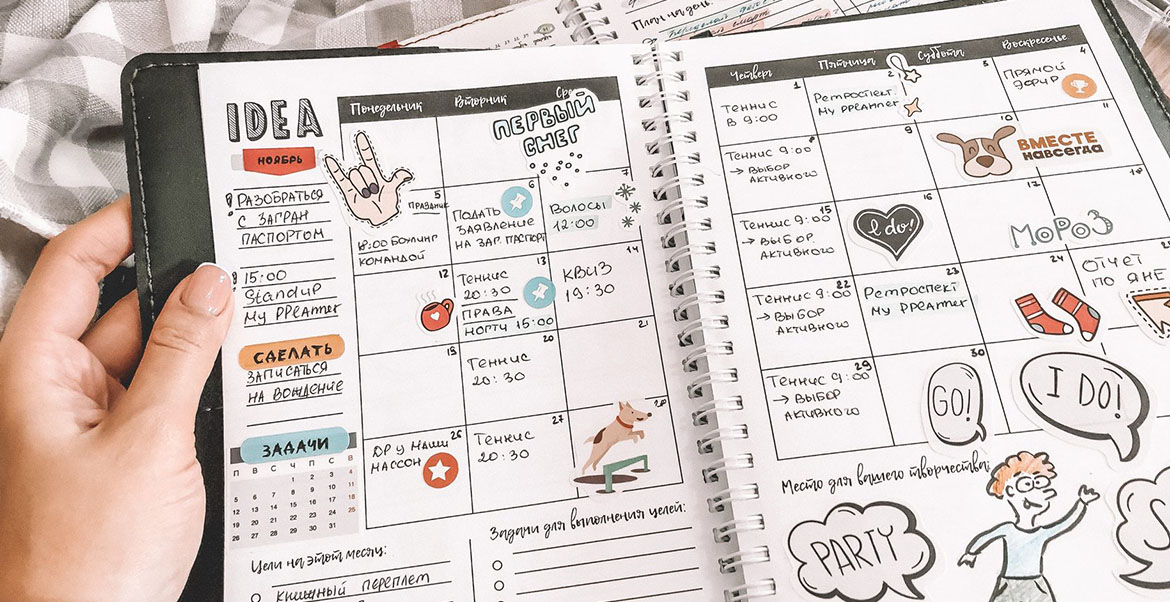 План на день:
IDEA
НОЯБРЬ
! РАЗОБРАТЬСЯ
С ЗАГРАН
ПАСПОРТОМ
15:00
StandUP
СДЕЛАТЬ
ЗАПИСАТЬСЯ
НА ВОЖДЕНИЕ
ЗАДАЧИ
П В С Ч П С В
1 2 3 4
5 6 7 8 9 10 11
12 13 14 15 16 17 18
19 20 21 22 23 24 25
26 27 28 29 30 31
Цели на этот месяц:
КНИЖНЫЙ ПЕРЕПЛЕТ
Понедельник Вторник
ПЕРВЫЙ
СНЕГ
5 ПРАЗДНИК
18:00 БОУЛИНГ
КОМАНДОЙ
6
ПОДАТЬ
ЗАЯВЛЕНИЕ
НА ЗАГ. ПАСПОРТ
7
ВОЛОСЫ
12:00
12
13
ТЕННИС
20:30
ПРАВА
НОГТИ 15:00
14
КВИЗ
19:30
19
20
ТЕННИС
20:30
21
26
ДР У НАШИ
МАССОН
27
ТЕННИС
20:30
28
Задачи для выполнения целей:
Четверг Пятница Суббота Воскресенье
1
ТЕННИС
В 9:00
2
РЕТРОСПЕКТ.
3
4
ПРЯМОЙ
ЭФИР
8
ТЕННИС 9:00
→ ВЫБОР
АКТИВНОГО
9
10
ВМЕСТЕ
НАВСЕГДА
11
15
ТЕННИС 9:00
→ ВЫБОР
АКТИВНОГО
16
I do!
17
МОРОЗ
18
22
ТЕННИС 9:00
→ ВЫБОР
АКТИВНОГО
23
РЕТРОСПЕКТ
24
ОТЧЕТ
ПО ЯНЕ
29
ТЕННИС 9:00
→ ВЫБОР
АКТИВНОГО
30
GO!
I DO!
Место для вашего творчества:
PARTY